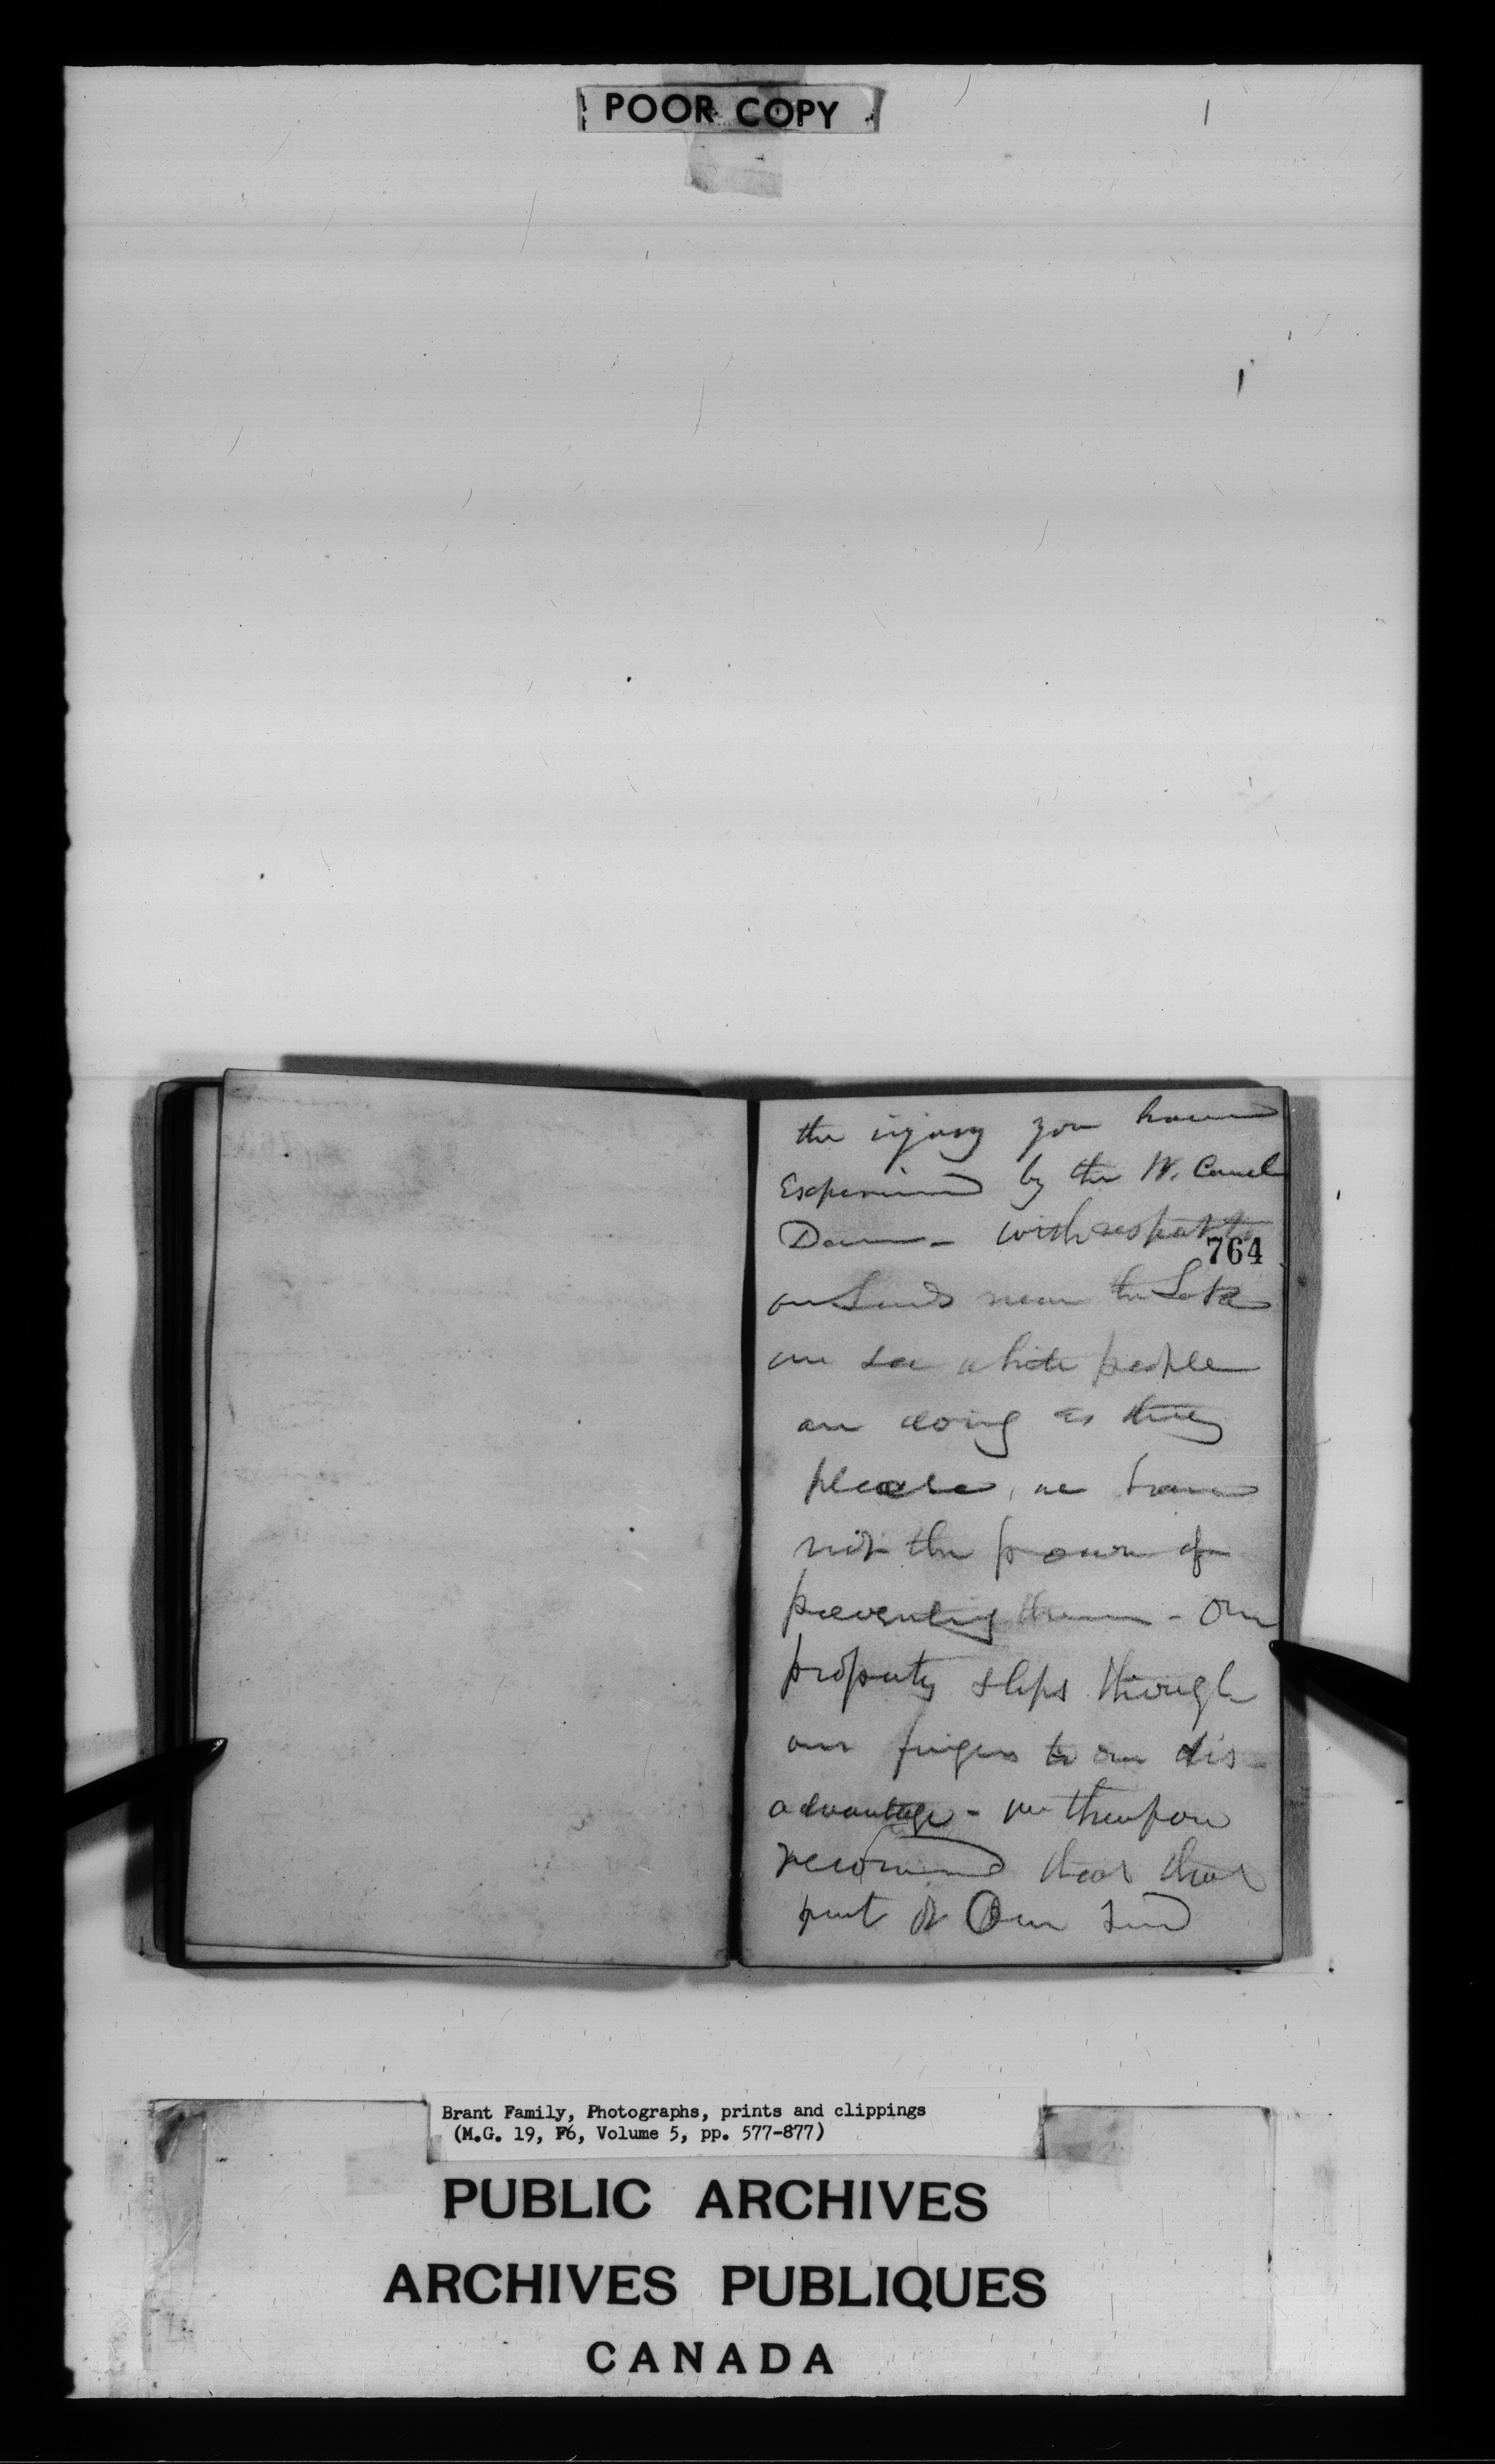 POOR COPY
the injury you have
Experienced by the W. Canal
Dam - with respect to
764
our Lands near the Lake
we see white people
are doing as they
please, we have
not the power of
preventing them - Our
property slips through
our fingers to our dis-
advantage - we therefore
recommend that that
part of Our Land
Brant Family, Photographs, prints and clippings
(M.G. 19, F6, Volume 5, pp. 577-877)
PUBLIC ARCHIVES
ARCHIVES PUBLIQUES
CANADA